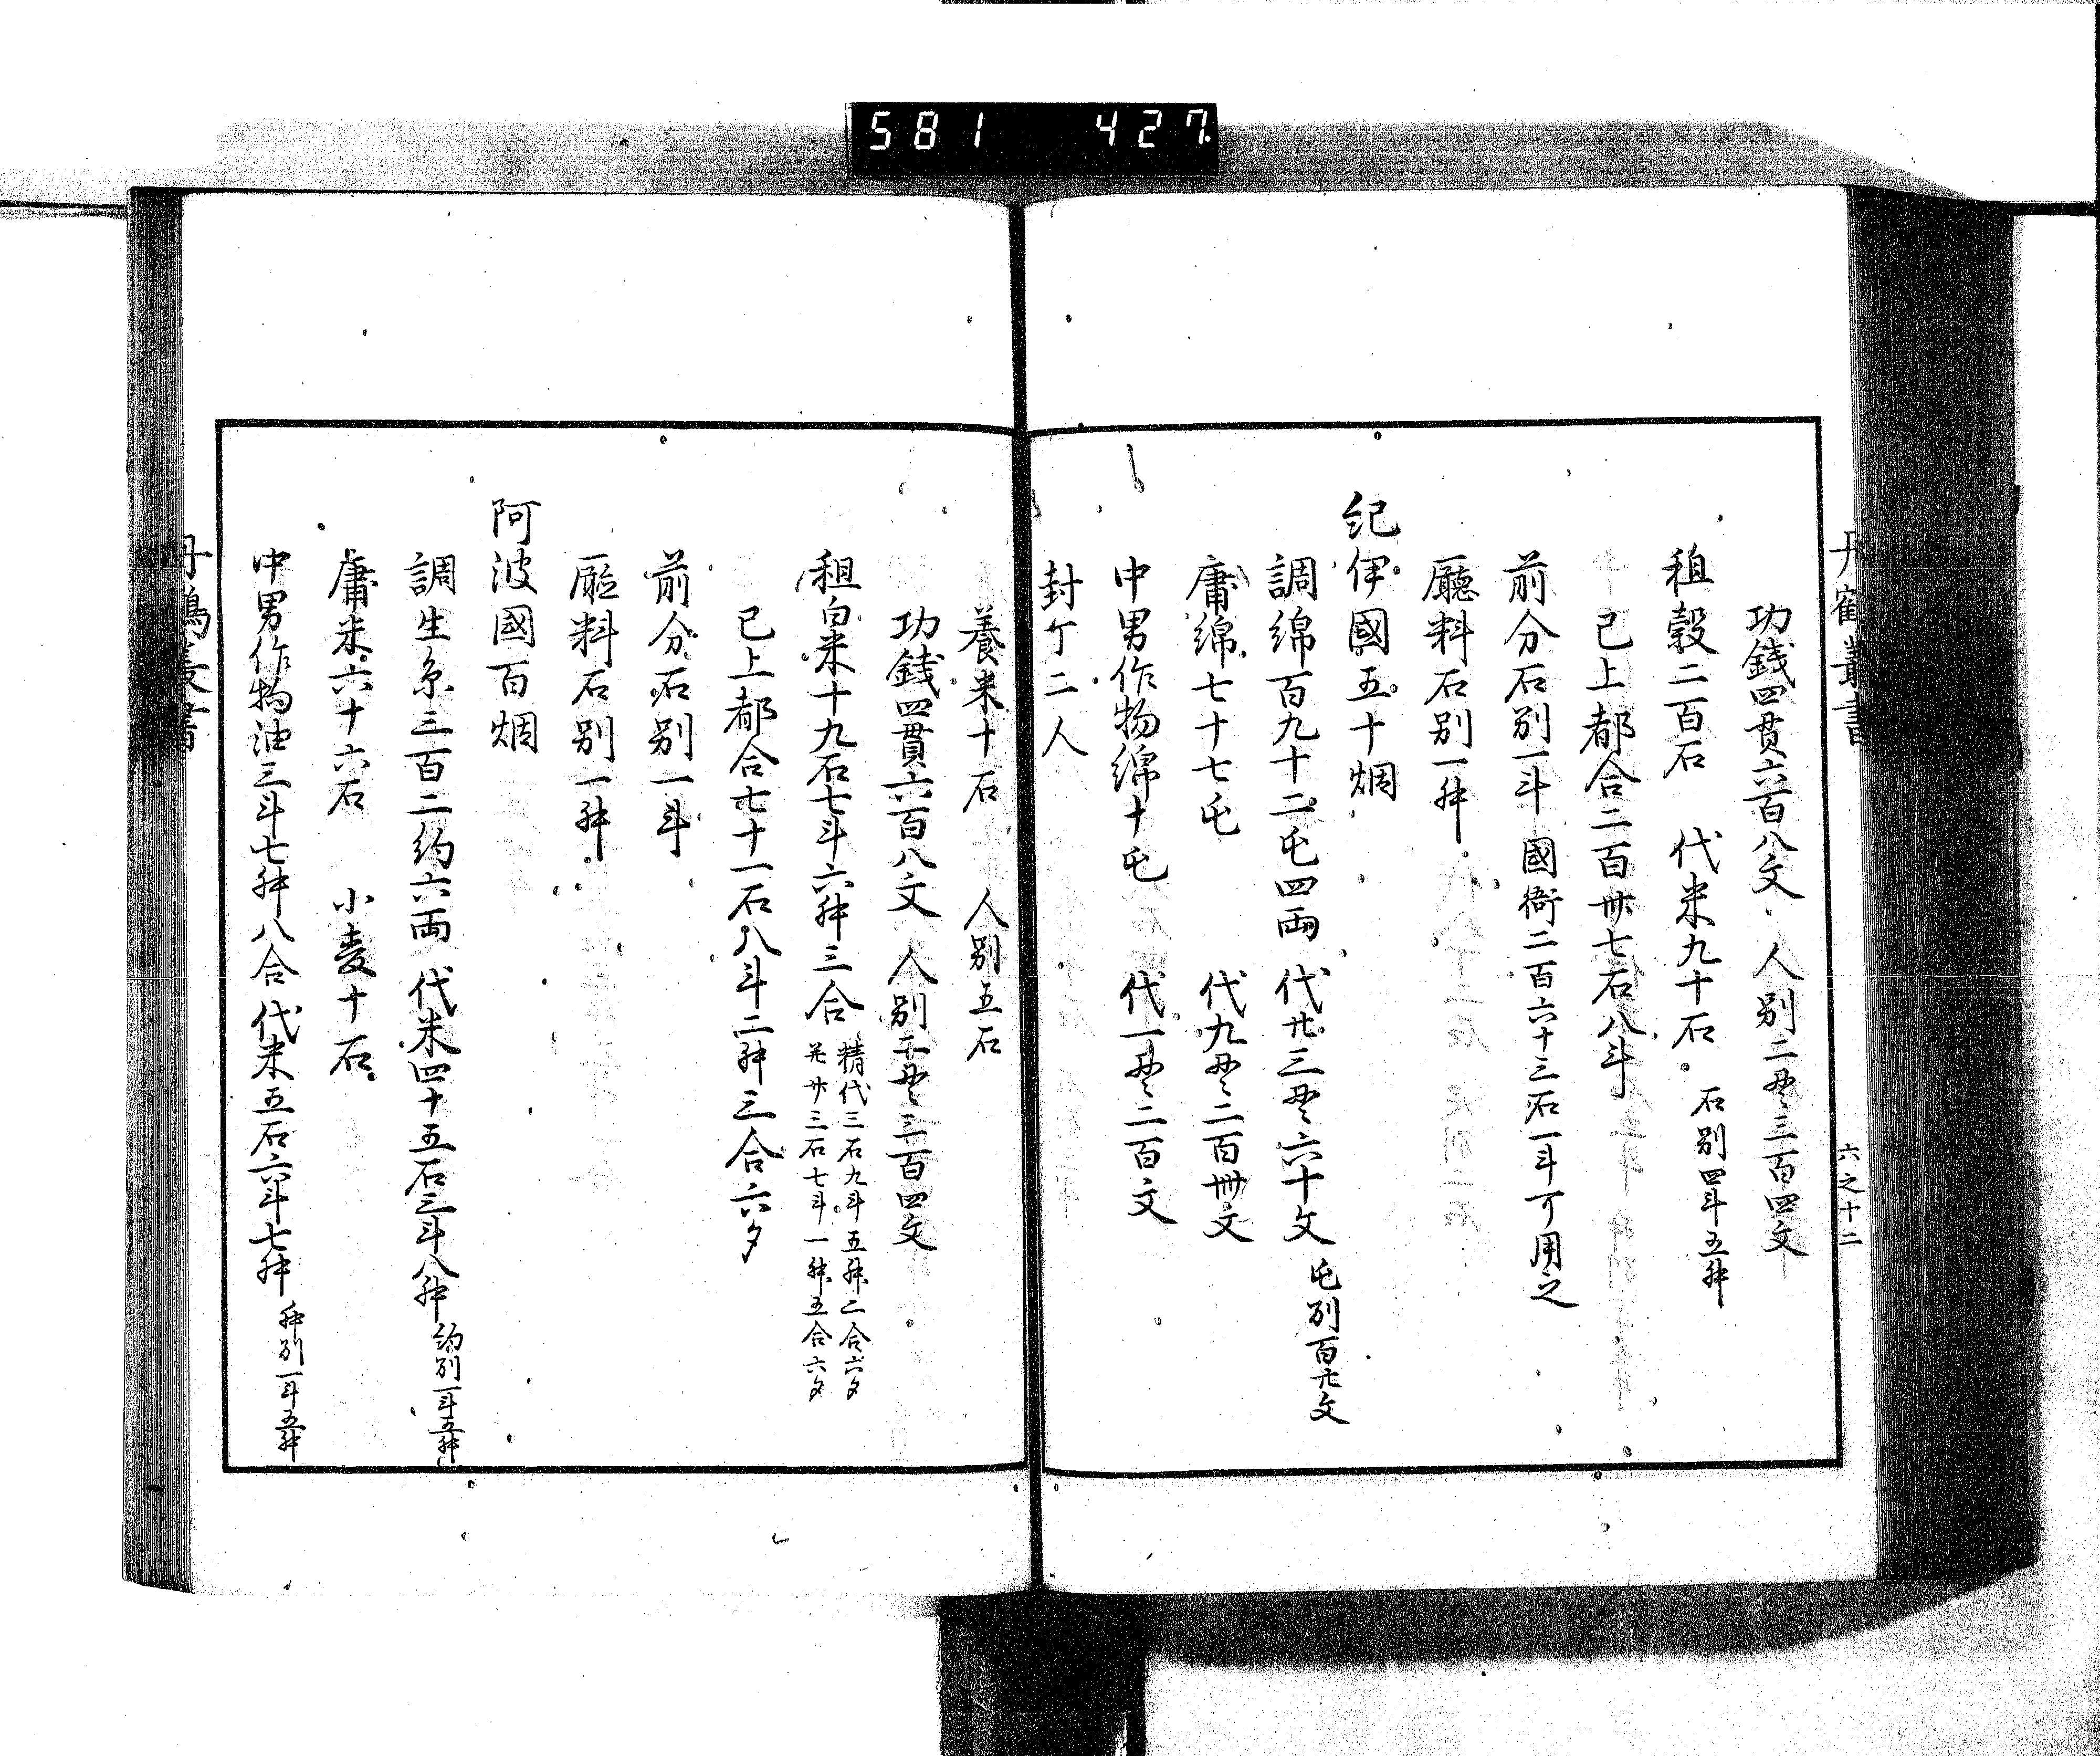 581 427
丹鶴叢書
六之十二
功錢四貫六百八文 人別二貫三百四文
租穀二百石 代米九十石 石別四斗五升
已上都合二百卅七石八斗
前分石別一斗 國衙二百六十三石一斗可用之
廳料石別一升
紀伊國五十烟
調綿百九十二屯四兩 代廿三貫六十文 屯別百廿文
庸綿七十七屯 代九貫二百卌文
中男作物綿十屯 代一貫二百文
封丁二人
養米十石 人別五石
功錢四貫六百八文 人別二貫三百四文
租白米十九石七斗六升三合 精代三石九斗五升二合六夕
并廿三石七斗一升五合六夕
已上都合七十一石八斗二升三合六夕
前分石別一斗
廳料石別一升
阿波國百烟
調生糸三百二約六兩 代米四十五石三斗八升 約別一斗五升
庸米六十六石 小麦十石
中男作物油三斗七升八合 代米五石六斗七升 升別一斗五升
丹鶴叢書